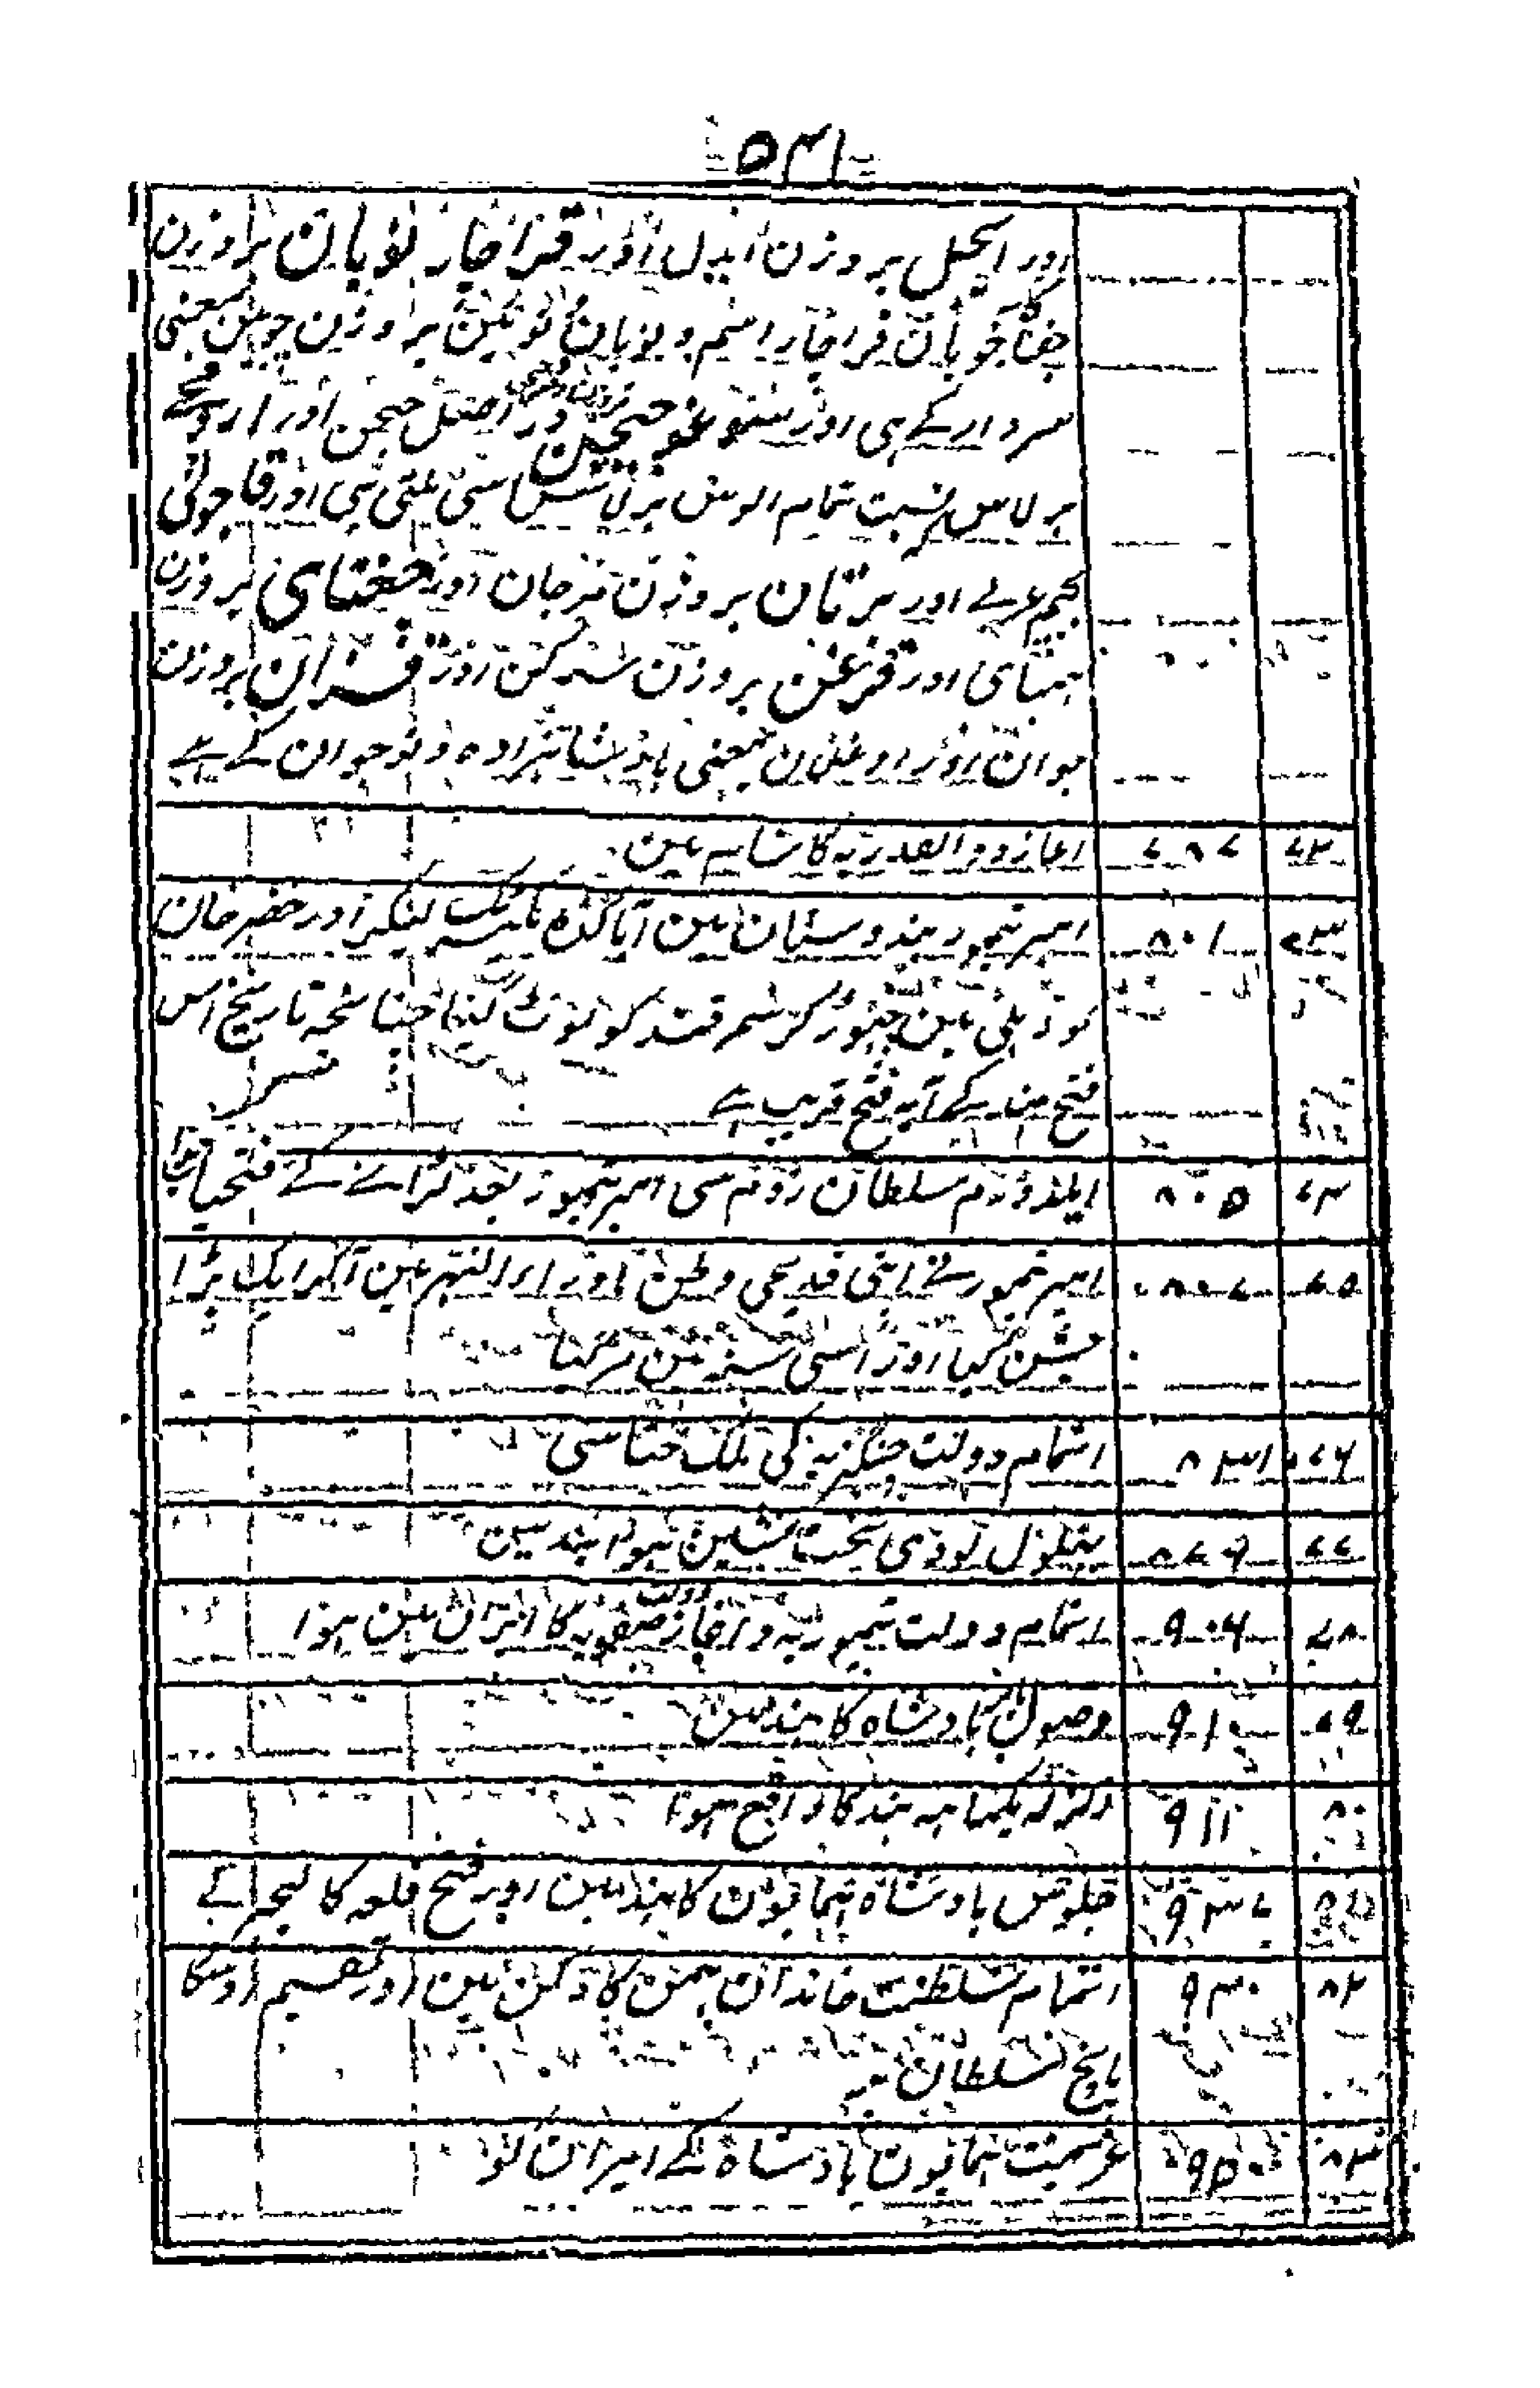 ۵۳۱
اور ایجل بروزن ابدل اور قراچار نویان بروزن
جفاجویان قراچار اسم و نویان و نوئین بروزن چوبین بمعنی
سردار کے ہی اور سوغوجیجین در اصل جیجن اور اردمجے
برلاس نسبت تمام الوس برلاس سی ملتی ہی اور قاجولی
بجیم عربے اور برتان بروزن مرجان اور جغتای بروزن
ہمتای اور قزغن بروزن شدکن اور قزان بروزن
جوان اور اوغلان بمعنی بادشاہزادہ و نوجوان کے ہے
۷۲ ۷۸۷ اغاز ذوالقدریہ کا شام مین
۷۳ ۸۰۱ امیر تیمور ہندوستان مین آیا لنکر اور خضر خان
کو دہلی مین چہوڑ کر سمرقند کو لوٹ گیا چنانچہ تاریخ اس
فتح ہند کے آیہ فتح قریب ہے
۷۴ ۸۰۵ ایلدرم سلطان روم سی امیر تیمور بعد لڑائے کے فتحیاب ہوا
۷۵ ۸۰۷ امیر تیمور نے اپنی قدیمی وطن ماوراءالنہر مین آکر ایک بڑا
جشن کیا اور اسی سنہ مین مرگیا
۷۶ ۸۳۱ اتمام دولت چنگزیہ کی ملک ختا سی
۷۷ ۸۷۹ بہلول لودی تخت نشین ہوا ہند مین
۷۸ ۹۰۶ اتمام دولت تیموریہ و آغاز دولت صفویہ کا ایران مین ہوا
۷۹ ۹۱۰ وصول بادشاہ کا ہند مین
۸۰ ۹۱۱ زلزلہ ہند کا واقع ہوا
۹۳۷ جلوس بادشاہ ہمایون کا ہند مین اور فتح قلعہ کالیجر کے
۸۲ ۹۳۰ اتمام سلطنت خاندان بہمن کا دکن مین اور تقسیم اوسکا
پانچ سلطان پہ
۸۳ ۹۵۰ عزیمت ہمایون بادشاہ کے ایران کو